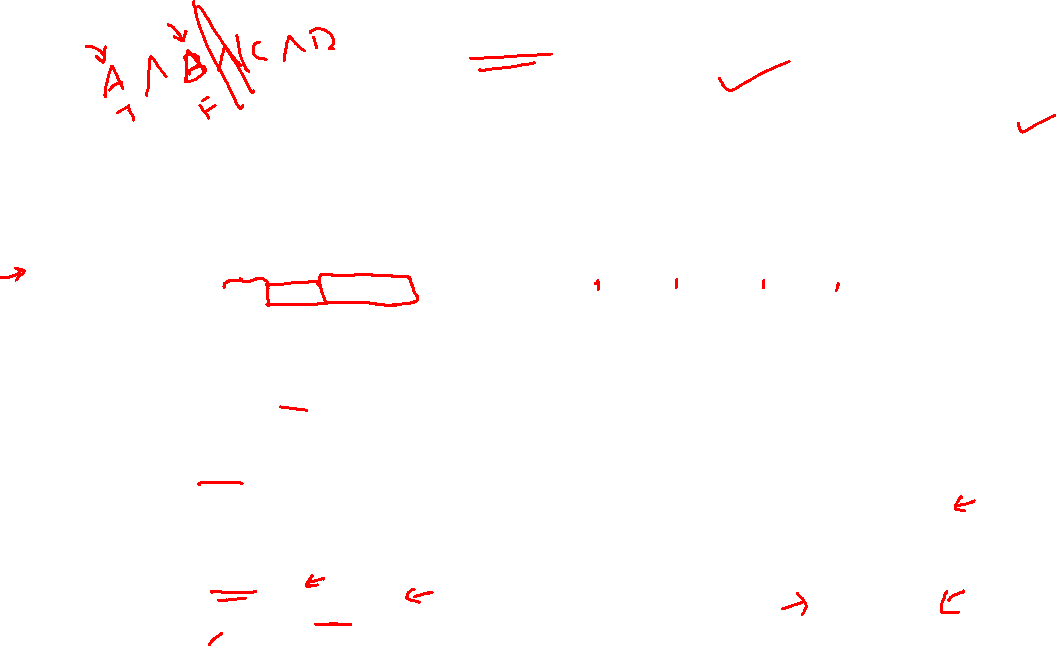 A ∧ B ∧ C ∧ D
T F